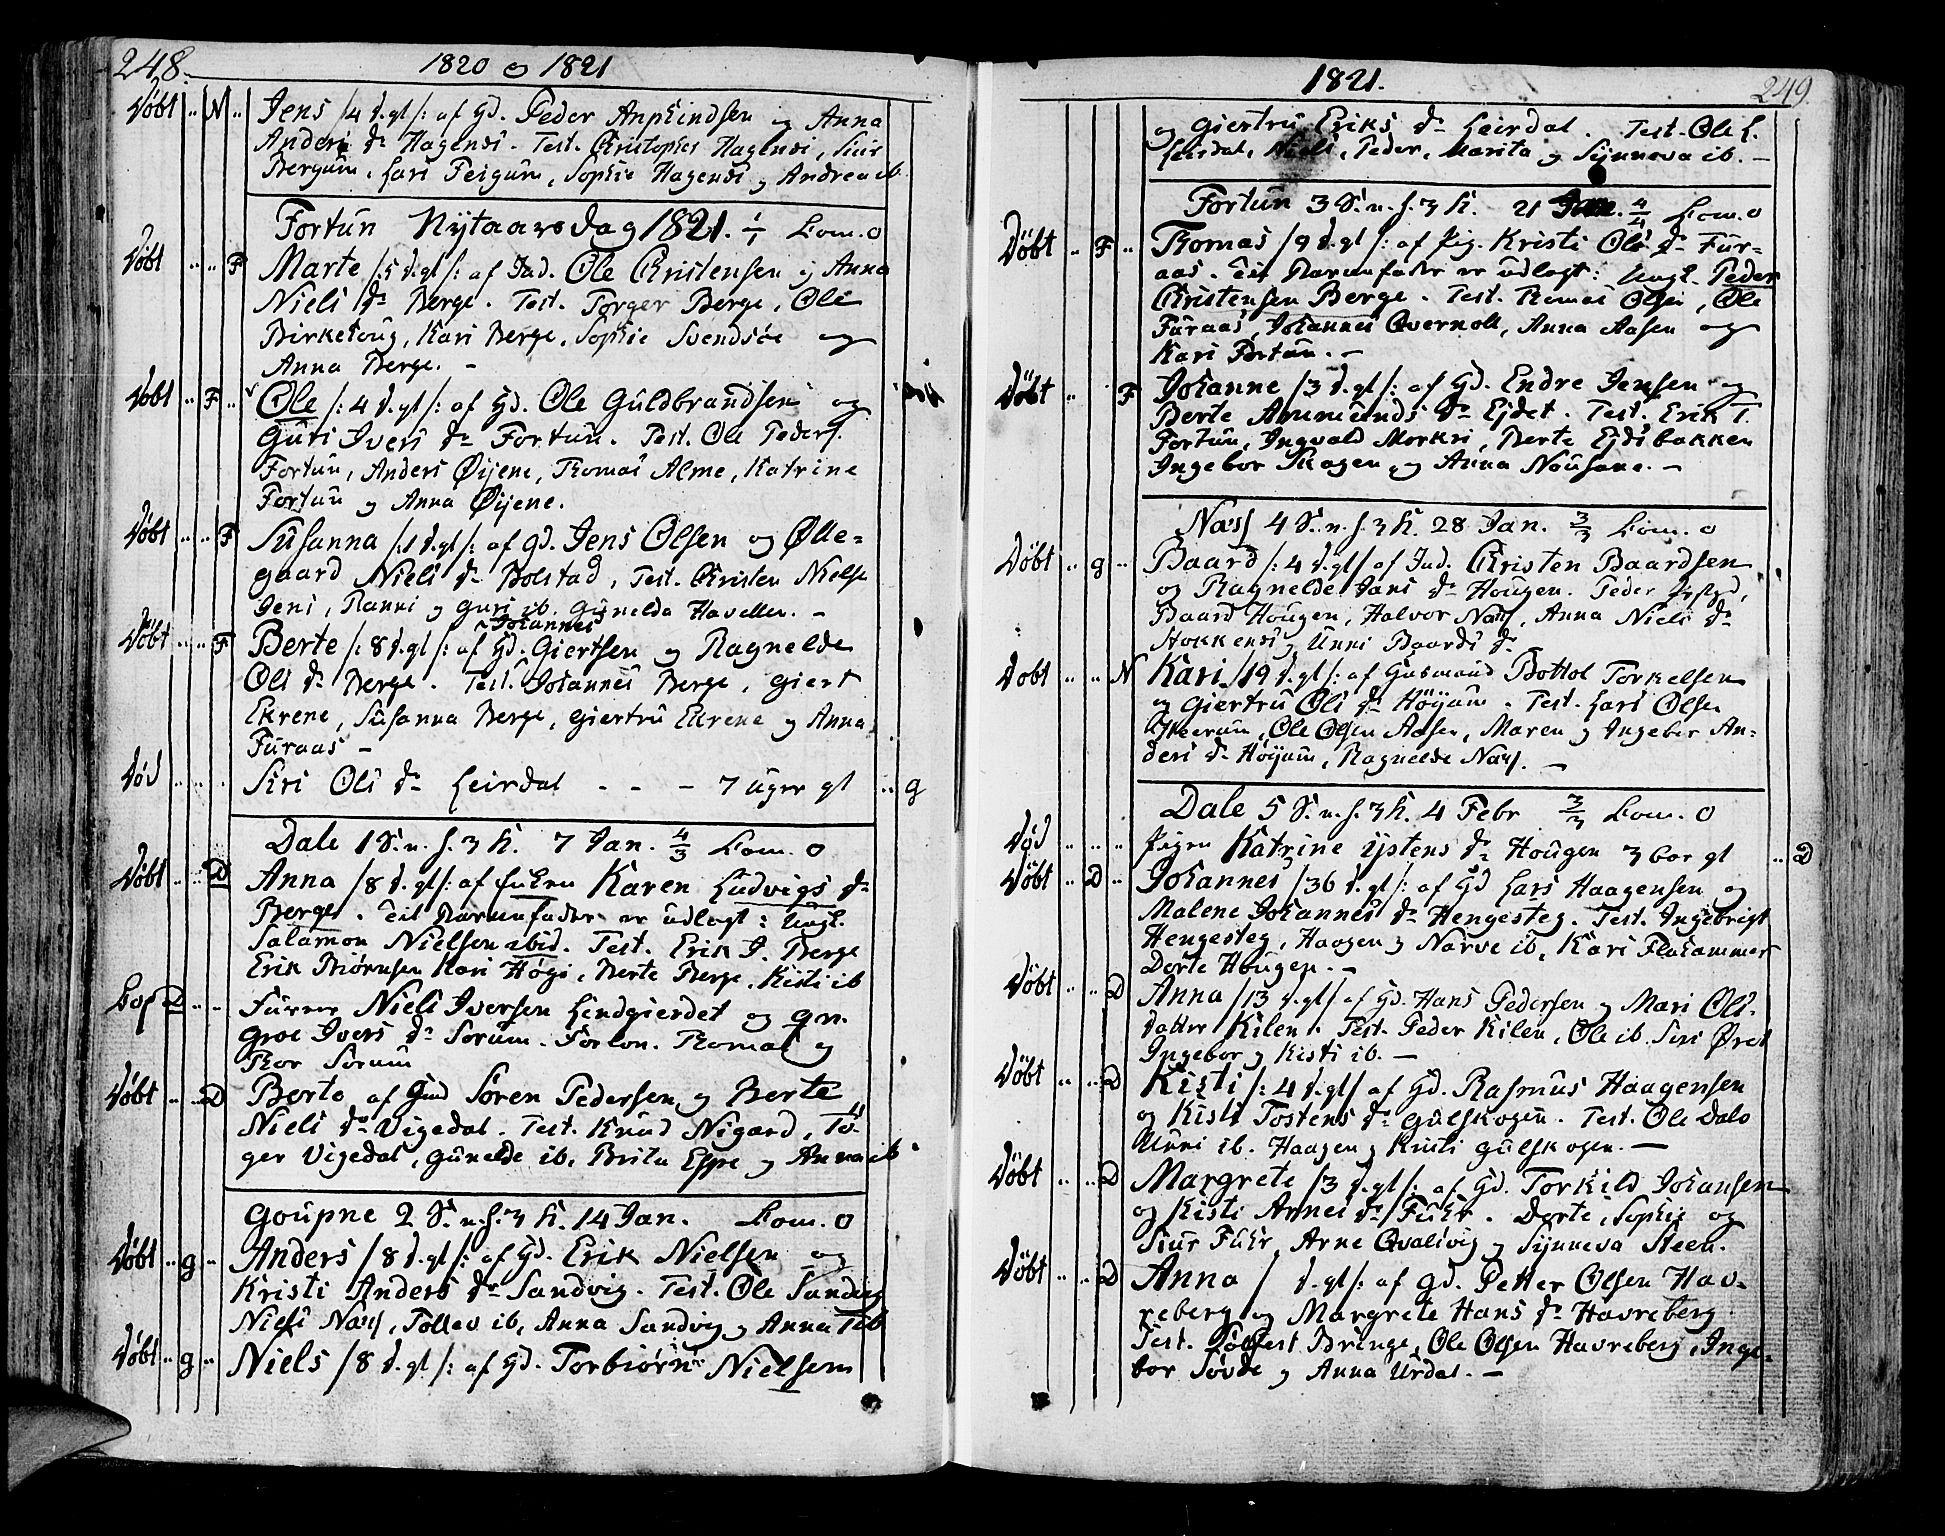 248.
1820 og 1821
Døbt .. N .. Jens /4 d. gl/: af Gd. Peder Anphindsen og Anna
Anders dr Hagensi. Test. Christopher Hagensi, Siur
Bergum, Lari Feigum, Sophie Hagensi og Andrea ib
Fortun Nytaarsdag 1821. 1/1 Com. 0
Døbt .. .. F Marte /:5 d. gl/: af Ind. Ole Christensen og Anna
Niels dr Berge. Test. Torger Berge, Ole
Birkehoug, Kari Berge, Sophie Svendsøe og
Anna Berge. -
Døbt .. F .. Ole /:4 d. gl/: af Gd. Ole Guldbrandsen og
Guri Ivers dr Fortun. Test. Ole Peders.
Fortun, Anders Øijene, Thomas Alme, Katrine
Fortun og Anna Øijene.
Døbt .. .. F Susanna /:1 d. gl/: af Gd. Jens Olsen og Ølle=
gaard Niels dr Bolstad, Test. Christen Niels
Jens, Ranni og Guri ib. Gunelda Havellen. -
Johannes
Døbt .. .. F Berte /:8 d. gl/: af Gd. Giertsen og Ragnelde
Ols dr Berge. Test. Johannes Berge, Giert
Ekrene, Susanna Berge, Giertru Ekrene og Anna
Furaas -
Død .. .. . Siri Ols dr Leirdal - - - 7 Uger gl .. G
Dale 1 S. n. H. 3 K. 7 Jan. 4/3 Com. 0
Døbt .. .. D Anna /8 d. gl/: af Karen Ludvigs dr
Berge. Til Barnefader er udlagt: Ungk.
Salamon Nielsen ibid. Test. Erik J. Berge
Erik Biørnsen Kari Høgi, Berte Berge, Kisti ib
Cop D .. .. Niels Iversen Lendgierdet og
Ivers dr Sorum. Forlov. Thomas og
Thor Sorum
Døbt .. .. D Berte af Gmd Søren Pedersen og Berte
Niels dr Vigedal. Test. Knud Nigard, Tor
ger Vigedal, Gunelde ib, Brita Espe og Anna ib
Goupne 2 S. n. H. 3 K. 14 Jan. Com. 0
Døbt .. G .. Anders /8 d. gl/: af Gd. Erik Nielsen og
Kristi Anders dr Sandvig. Test. Ole Sandvig
Niels Næss, Tollev ib, Anna Sandvig og Anna T ib
Døbt .. G .. Niels /8 d. gl/: af Gd. Torbiørn Nielsen
1821.
249.
og Giertru Eriks dr Leirdal. Test. Ole L.
Leirdal, Niels, Peder, Marita og Synneva ib. -
Fortun 3 S. n. H. 3 K. 21 Jan. 4/4 Com. 0
Døbt .. F .. Thomas /9 d. gl/: af Pig. Kristi Ols dr Fur-
aas. Til Barnefader er udlagt: Ungk. Peder
Christensen Berge. Test. Thomas Olsen, Ole
Furaas, Johannes Qvernoll, Anna Aasen og
Kari Fortun. -
Døbt .. F Johanne /3 d. gl/: af Gd. Endre Jensen og
Berte Ammunds dr Ejdet. Test. Erik T.
Fortun, Ingvald Morkri, Berte Ejdsbakken
Ingebor Skagen, og Anna Nousane. -
Næss 4 S. n. H. 3 K. 28 Jan. 3/3 Com. 0
Døbt .. G .. Baard /:4 d. gl/ af Ind. Christen Baardsen
og Ragnelde Jans dr Hougen. Peder
Baard Hougen, Halvor Næss, Anna Niels dr
Stokkensi og Unni Baards dr
Døbt .. .. N Kari /19 d. gl/: af Gusmand Bottol Torkelsen
og Giertru Ols dr Høyum. Test. Lars Olsen
Ole Olsen Aasen, Maren og Ingebor An=
ders dr Høyum, Ragnelde Næss. -
Dale 5 S. n. H. 3 K. 4 Febr 3/3 Com. 0
Død .. .. .. Pigen Katrine Ijstens dr Hougen 3 bar gl .. D
Døbt .. D .. Johannes /36 d. gl/: af Gd Lars Haagensen og
Malene Johannes dr Hengesteg. Test. Ingebrigt
Hengesteg, Haagen og Narve ib, Kari Flahammer
Dorte Hougen. -
Døbt .. .. D Anna /13 d. gl/ af Gd. Hans Pedersen og Mari Ols
datter Kilen. Test. Peder Kilen, Ole ib. Siri Øret
Ingebor og Kisti ib. -
Døbt .. .. D Kisti /:4 d. gl/ af Gd. Rasmus Haagensen
og Kisti Tostens dr Gulskogen. Test. Ole Dale
Unni ib. Haagen og Knuti Gulskogen. -
Døbt .. .. D Margrete /3 d. gl/: af Gd. Torkild Johansen
og Kisti Arnes dr Fuhr. Dorte, Sophie og
Siur Fuhr, Arne Qvalsvig og Synneva Steen.
Døbt .. .. D Anna / d. gl/: af Gd. Petter Olsen Hav-
reberg og Margrete Hans dr Havreberg
Test. Solfest Bringe, Ole Olsen Havreberg, Inge-
bor Søvde og Anna Urdal. -